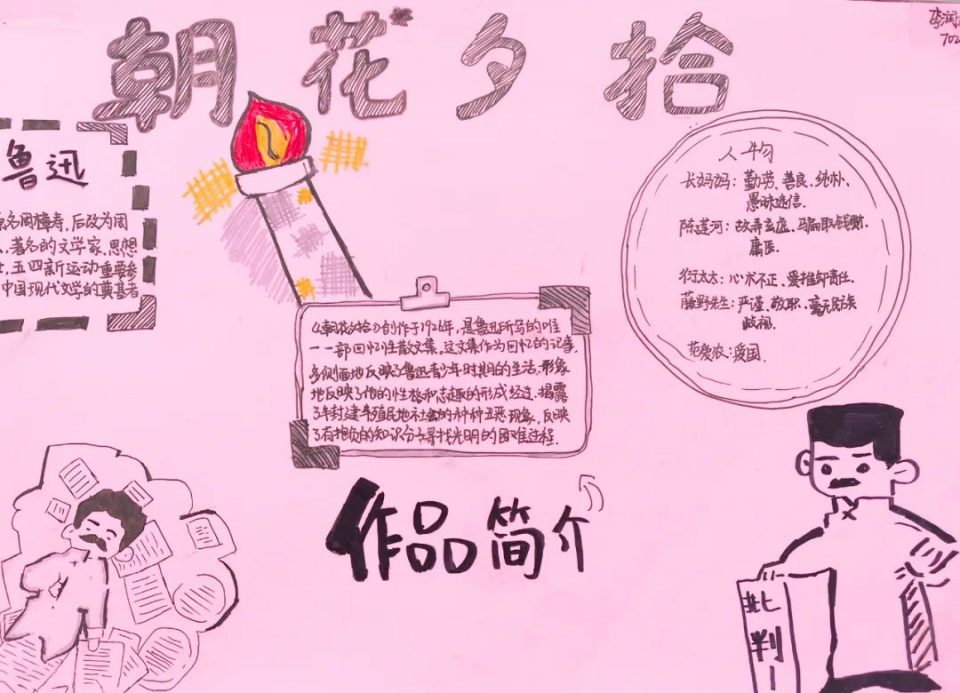 朝花夕拾
702
鲁迅
原名周樟寿,后改为周
著名的文学家、思想
五四新运动重要参
中国现代文学的奠基者
人物
长妈妈:勤劳、善良、纯朴、
愚昧迷信.
陈莲河:故弄玄虚、骗取钱财、
庸医.
衍太太:心术不正、爱推卸责任.
藤野先生:严谨、敬职、毫无民族
歧视.
范爱农:爱国.
《朝花夕拾》创作于1926年,是鲁迅所写的唯
一一部回忆性散文集。这文集作为回忆的记事,
多侧面地反映了鲁迅青少年时期的生活,形象
地反映了他的性格和志趣的形成经过.揭露
了半封建半殖民地社会的种种丑恶现象,反映
了有抱负的知识分子寻找光明的困难过程.
作品简介
批判!